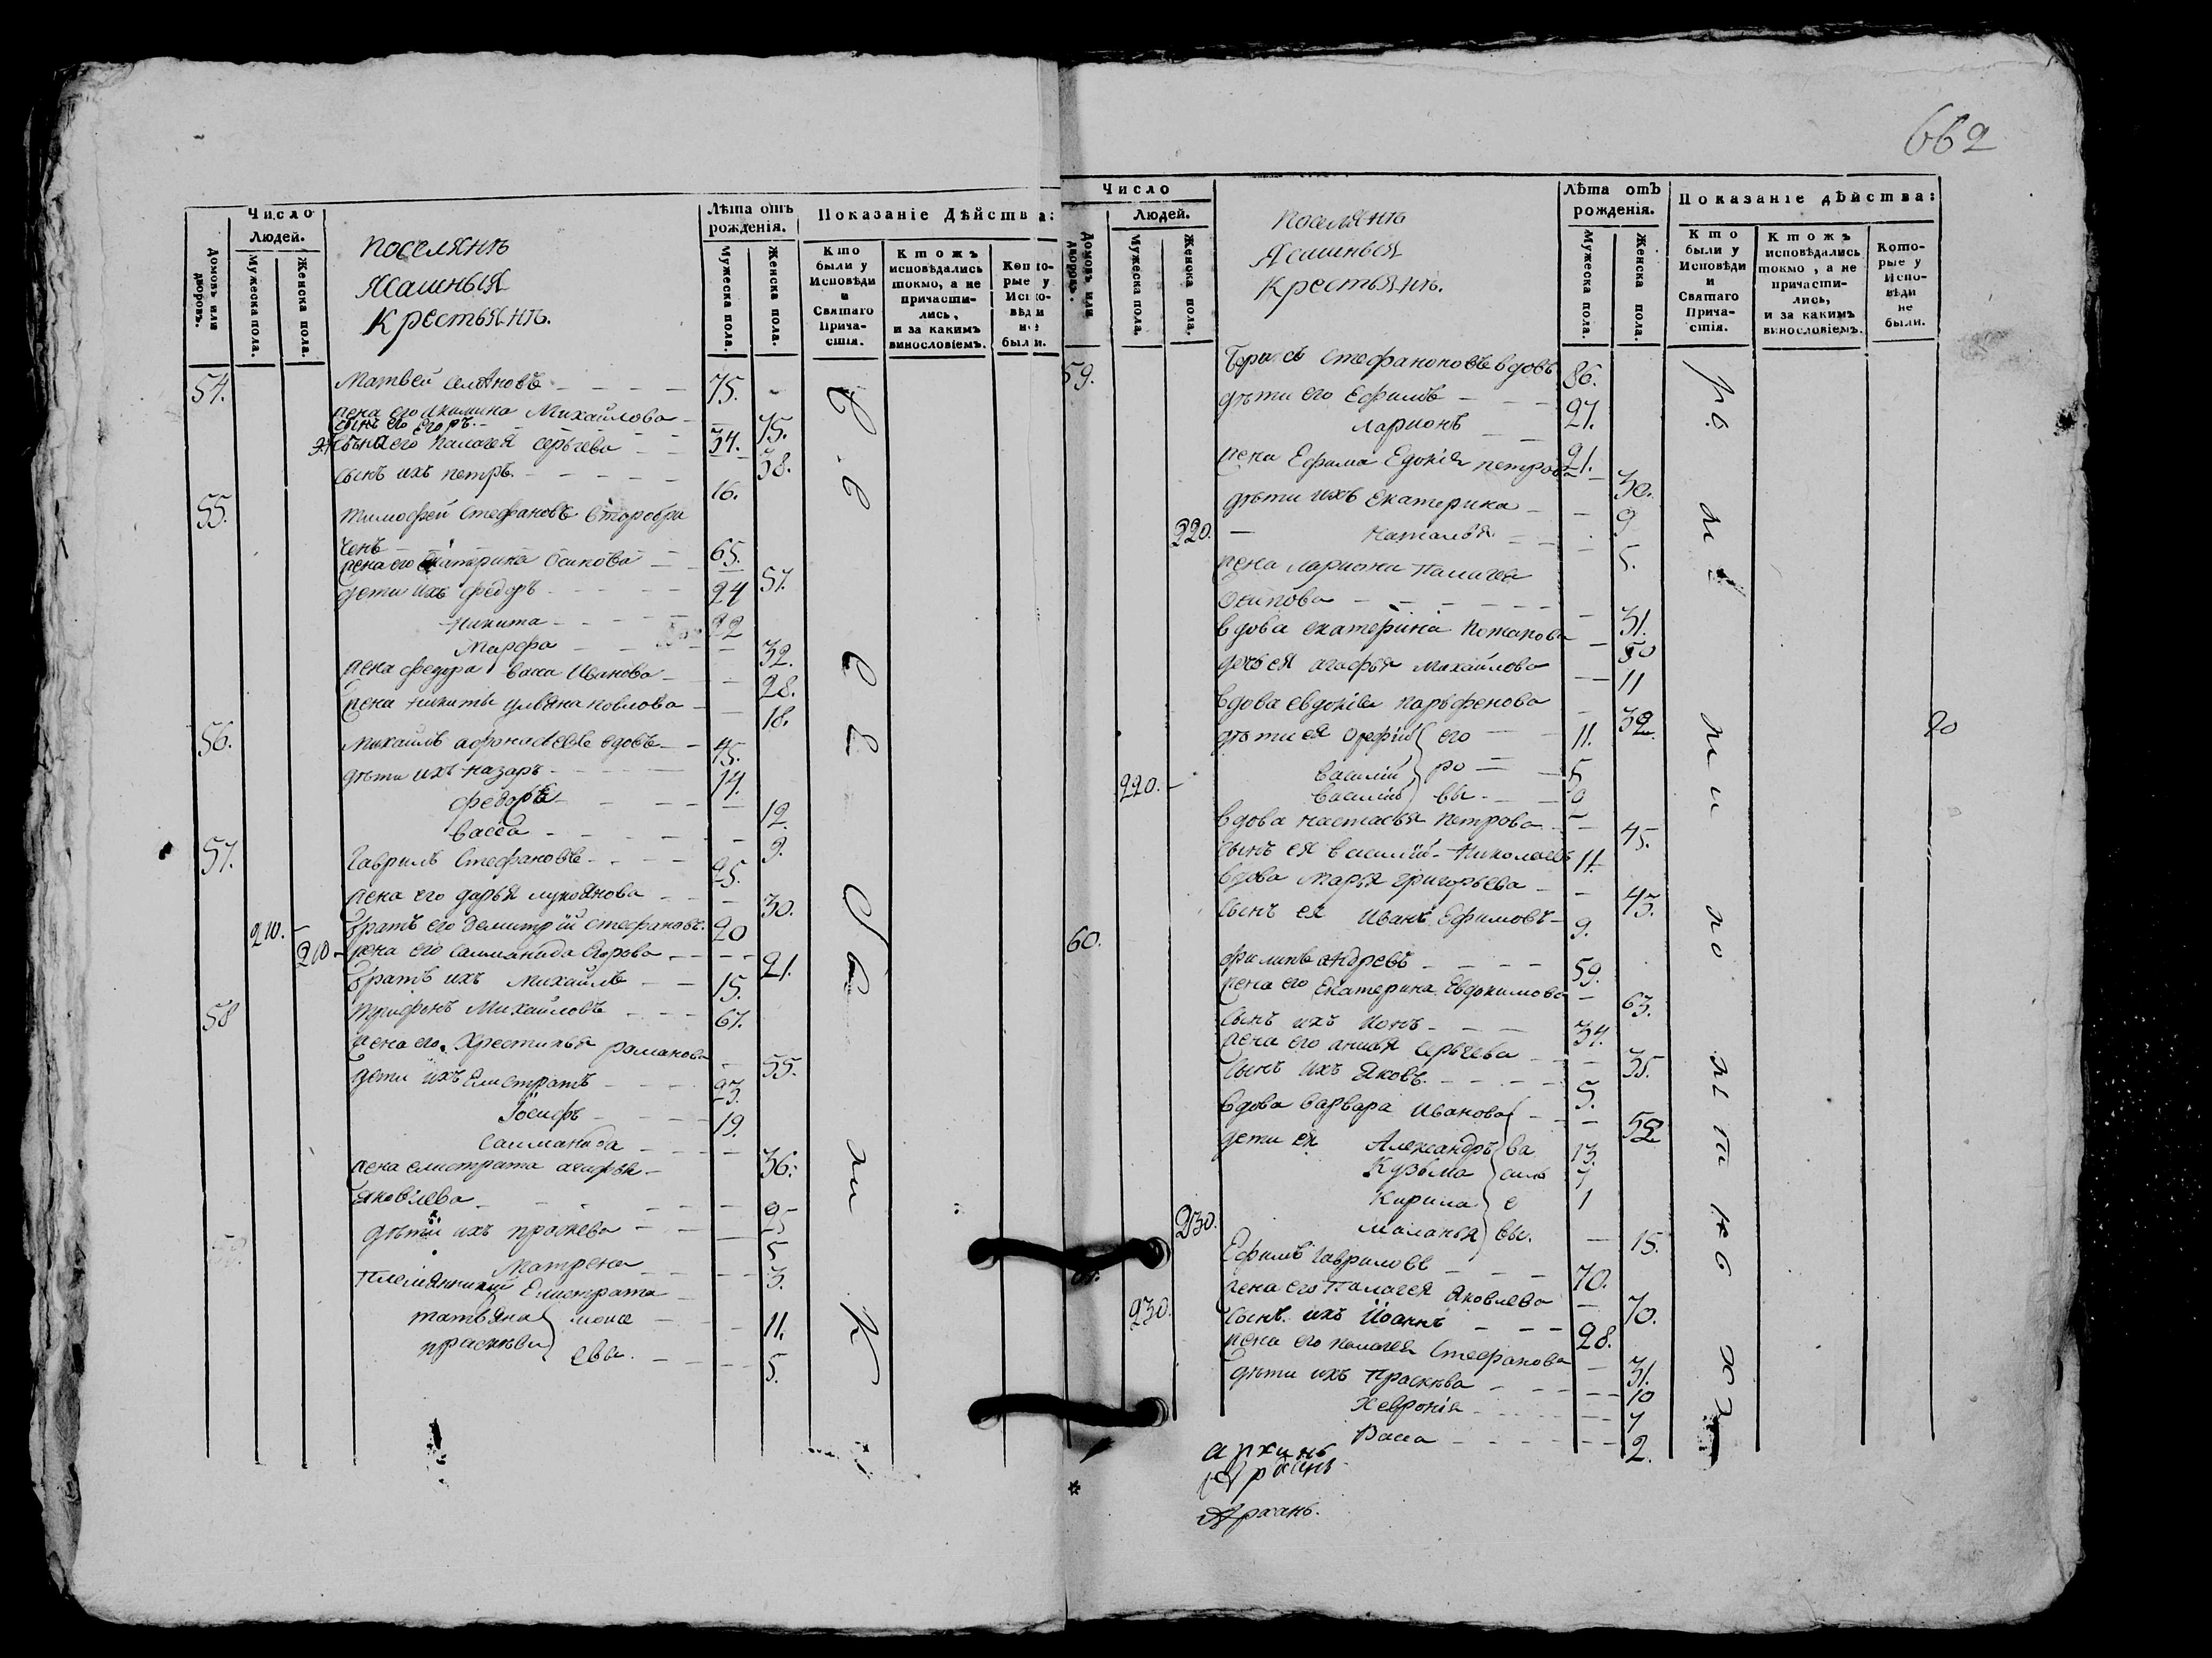 662
Число
Людей.
Домовъ или дворовъ.
Мужеска пола.
Женска пола.
поселянъ
Ясашныя
крестьянъ.
Лѣта отъ рожденія.
Мужеска пола.
Женска пола.
Показаніе Дѣйства:
Кто были у Исповѣди и Святаго Прича-стія.
Ктожъ исповѣдались токмо, а не причасти-лись, и за какимъ винословіемъ.
Кото-рые у Испо-вѣди не были.
54. Матвей селяновъ 75.
жена его акилина Михайлова 75.
сынъ его егоръ 34.
жена его палагея серьгева 38.
сынъ ихъ петръ 16.
55. тимофей стефановъ второбра
ченъ 65.
жена его екатерина осипова 57.
дети ихъ федоръ 24
никита 22
марфа 32.
жена федора васа иванова 28.
жена никиты ульяна повлова 18.
56. михаилъ афонасьевъ вдовъ 45.
дѣти ихъ назаръ 14.
федоръ 12
васса 9.
57. гаврилъ стефановъ 25.
жена его дарья лукоянова 30.
210. братъ его демитрій стефановъ 20
210 жена его саломанида егорова 21.
братъ ихъ михайлъ 15.
58 трифонъ михайловъ 67.
жена его хрестинья романова 55.
дети ихъ елистратъ 23.
іосифъ 19.
саломанида 36.
жена елистрата агафья
яковлева 25
дѣти ихъ прасковья 5
матрена 3.
племянники елистрата
татьяна моисе 11.
прасковья евы. 5.
Число
Людей.
Домовъ или дворовъ.
Мужеска пола.
Женска пола.
поселянъ
Ясашныя
крестьянъ.
Лѣта отъ рожденія.
Мужеска пола.
Женска пола.
Показаніе дѣйства:
Кто были у Исповѣди и Святаго Прича-стія.
Ктожъ исповѣдались токмо, а не причасти-лись, и за какимъ винословіемъ.
Кото-рые у Испо-вѣди не были.
59. борисъ стефановъ вдовъ 86.
дѣти его ефимъ 27.
ларионъ 21.
жена ефима едокія петрова 30.
дѣти ихъ екатерина 9
220. наталья 5.
жена лариона палагея
осипова 31.
вдова екатерина потапова 50
дочь ея агафья михайлова 11
вдова евдокія парьфенова 32.
дѣти ея его 11.
василій ро 5
220. василій вы. 0
вдова настасья петрова 45.
сынъ ея василій николаевъ 11.
вдова марья григорьева 45.
сынъ ея иванъ ефимовъ 9.
60. филипъ андревъ 59.
жена его екатерина евдокимова 63.
сынъ ихъ 34.
жена его анисья серьгева 35.
сынъ ихъ яковъ 5.
вдова варвара иванова 52
дети ея александръ ва 13.
кузьма силь 7
кирила е 1
230. маланья вы. 15.
ефимъ гавриловъ 70.
жена его палагея яковлева 70.
230. сынъ ихъ іоаннъ 28.
жена его палагея стефанова 31.
дѣти ихъ прасковья 10
хевронія 7
васа 2.
20
архинь
архинь
архань.